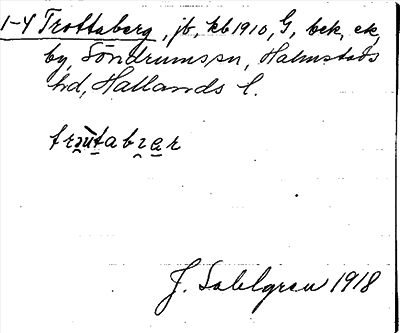 1-4 Trottaberg, jb, kb 1910, G, bek, ek,
by, Söndrums sn, Halmstads
hd, Hallands l.
J. Sahlgren 1918